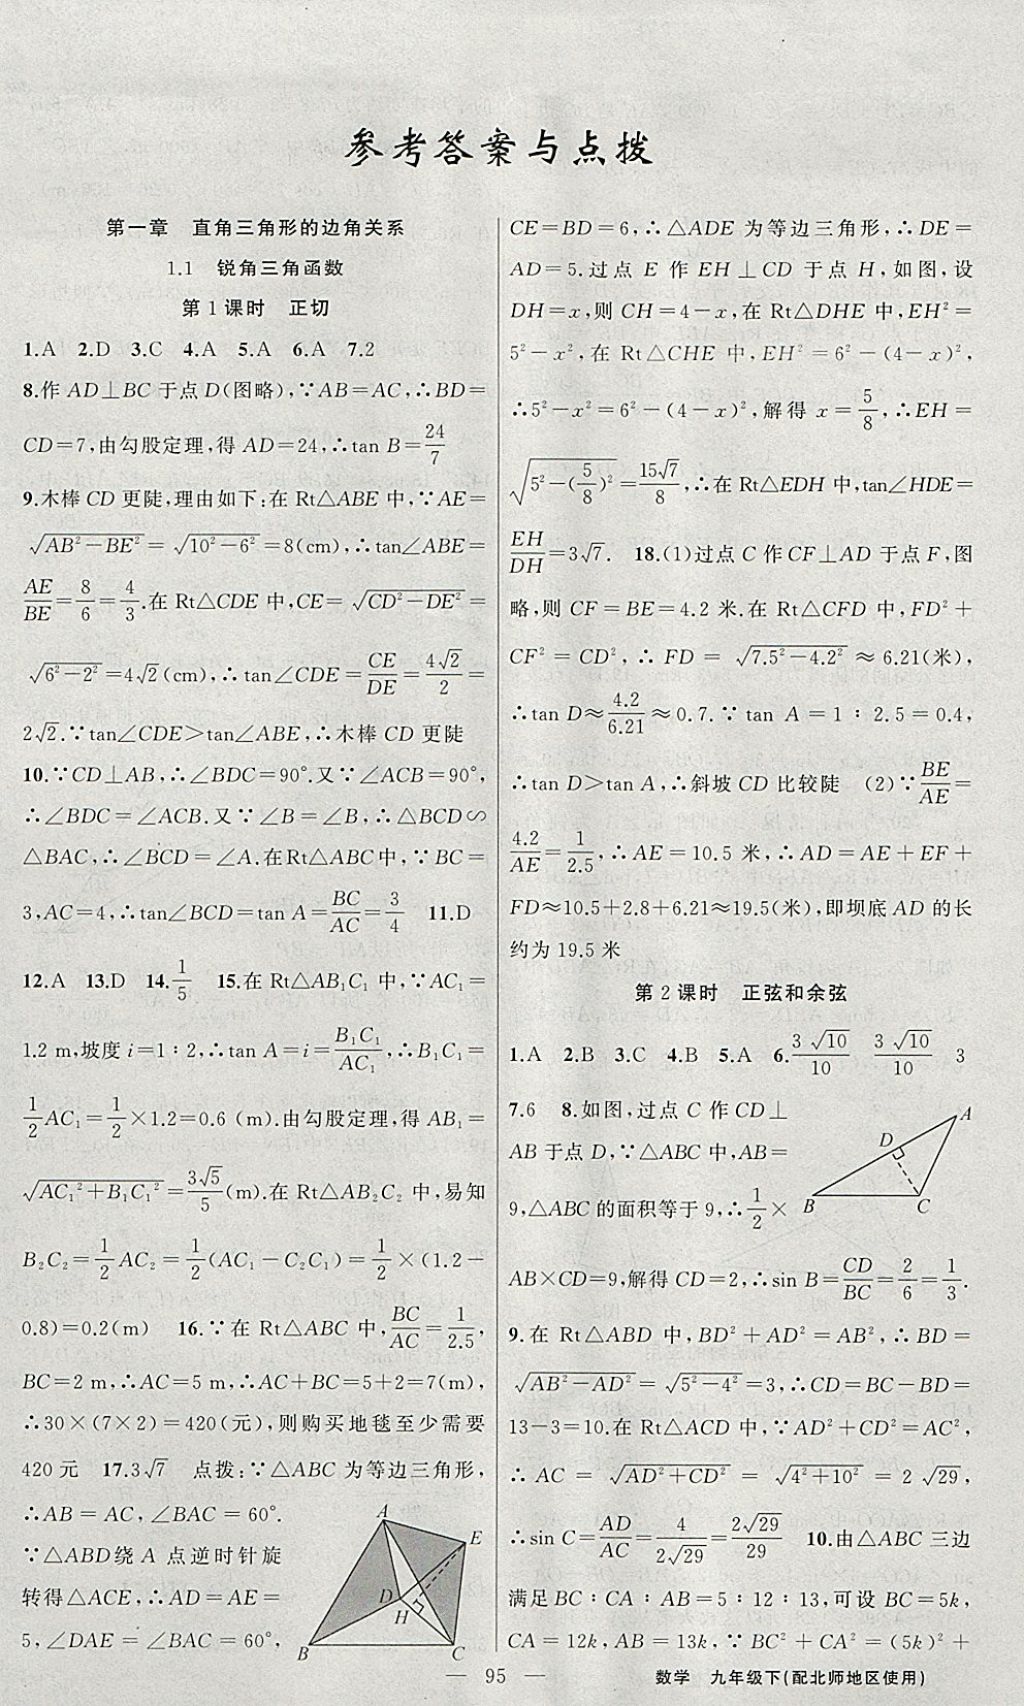 参考答案与点拨
第一章　直角三角形的边角关系
1.1　锐角三角函数
第1课时　正切
1.A　2.D　3.C　4.A　5.A　6.A　7.2
8.作 AD⊥BC 于点 D(图略),∵AB=AC,∴BD=
CD=7,由勾股定理,得 AD=24,∴tan B=24/7
9.木棒 CD 更陡,理由如下:在 Rt△ABE 中,∵AE=
√(AB²-BE²)=√(10²-6²)=8(cm),∴tan∠ABE=
AE/BE=8/6=4/3.在 Rt△CDE 中,CE=√(CD²-DE²)=
√(6²-2²)=4√2(cm),∴tan∠CDE=CE/DE=4√2/2=
2√2.∵tan∠CDE>tan∠ABE,∴木棒 CD 更陡
10.∵CD⊥AB,∴∠BDC=90°.又∵∠ACB=90°,
∴∠BDC=∠ACB.又∵∠B=∠B,∴△BCD∽
△BAC,∴∠BCD=∠A.在Rt△ABC中,∵BC=
3,AC=4,∴tan∠BCD=tan A=BC/AC=3/4　11.D
12.A　13.D　14.1/5　15.在 Rt△AB₁C₁ 中,∵AC₁=
1.2 m,坡度 i=1∶2,∴tan A=i=B₁C₁/AC₁,∴B₁C₁=
1/2AC₁=1/2×1.2=0.6 (m).由勾股定理,得 AB₁=
√(AC₁²+B₁C₁²)=3√5/5(m).在 Rt△AB₂C₂ 中,易知
B₂C₂=1/2AC₂=1/2(AC₁-C₂C₁)=1/2×(1.2-
0.8)=0.2(m)　16.∵在 Rt△ABC 中,BC/AC=1/2.5,
BC=2 m,∴AC=5 m,∴AC+BC=5+2=7(m),
∴30×(7×2)=420(元),则购买地毯至少需要
420元　17.3√7　点拨:∵△ABC 为等边三角形,
∴AB=AC,∠BAC=60°.
∵△ABD绕 A 点逆时针旋
转得△ACE,∴AD=AE=
5,∠DAE=∠BAC=60°,
A
E
D
H
B
C
CE=BD=6,∴△ADE 为等边三角形,∴DE=
AD=5.过点 E 作 EH⊥CD 于点 H,如图,设
DH=x,则 CH=4-x,在 Rt△DHE 中,EH²=
5²-x²,在 Rt△CHE 中,EH²=6²-(4-x)²,
∴5²-x²=6²-(4-x)²,解得 x=5/8,∴EH=
√(5²-(5/8)²)=15√7/8,∴在Rt△EDH中,tan∠HDE=
EH/DH=3√7.　18.(1)过点 C 作CF⊥AD 于点 F,图
略,则 CF=BE=4.2 米.在 Rt△CFD 中,FD²+
CF²=CD²,∴FD=√(7.5²-4.2²)≈6.21(米),
∴tan D≈4.2/6.21≈0.7.∵tan A=1∶2.5=0.4,
∴tan D>tan A,∴斜坡 CD 比较陡　(2)∵BE/AE=
4.2/AE=1/2.5,∴AE=10.5 米,∴AD=AE+EF+
FD≈10.5+2.8+6.21≈19.5(米),即坝底 AD 的长
约为 19.5 米
第2课时　正弦和余弦
1.A　2.B　3.C　4.B　5.A　6.3√10/10　3√10/10　3
7.6　8.如图,过点 C 作 CD⊥
AB 于点 D,∵△ABC 中,AB=
9,△ABC 的面积等于 9,∴1/2×
A
D
B
C
AB×CD=9,解得 CD=2,∴sin B=CD/BC=2/6=1/3.
9.在 Rt△ABD 中,BD²+AD²=AB²,∴BD=
√(AB²-AD²)=√(5²-4²)=3,∴CD=BC-BD=
13-3=10.在 Rt△ACD 中,∵AD²+CD²=AC²,
∴AC=√(AD²+CD²)=√(4²+10²)=2√29,
∴sin C=AD/AC=4/(2√29)=2√29/29　10.由△ABC 三边
满足 BC∶CA∶AB=5∶12∶13,可设 BC=5k,
CA=12k,AB=13k,∵BC²+CA²=(5k)²+
— 95 —
数学　九年级下(配北师地区使用)